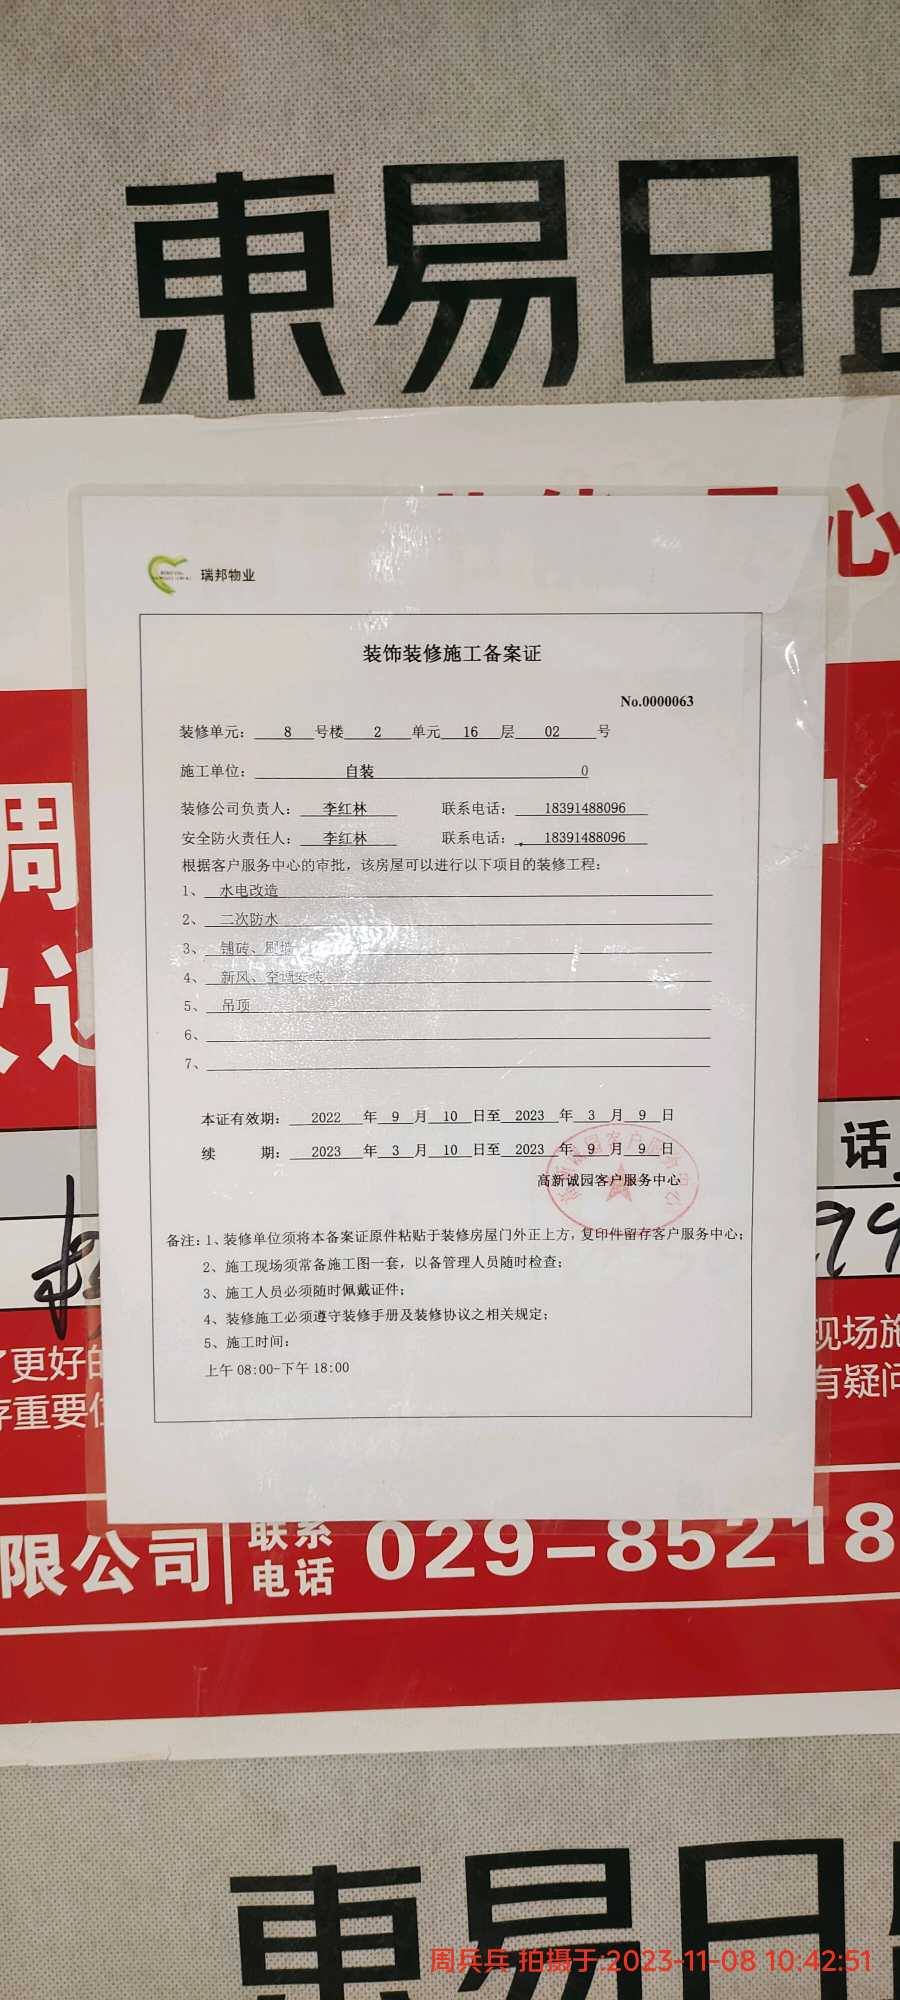 東易日
心
瑞邦物业
装饰装修施工备案证
No.0000063
装修单元： 8 号楼 2 单元 16 层 02 号
施工单位： 自装 0
装修公司负责人： 李红林 联系电话： 18391488096
安全防火责任人： 李红林 联系电话： 18391488096
根据客户服务中心的审批，该房屋可以进行以下项目的装修工程：
1、 水电改造
2、 二次防水
3、 铺砖、刷墙
4、 新风、空调安装
5、 吊顶
6、
7、
本证有效期： 2022 年 9 月 10 日至 2023 年 3 月 9 日
续 期： 2023 年 3 月 10 日至 2023 年 9 月 9 日
高新诚园客户服务中心
高新诚园客户服务中心
备注：1、装修单位须将本备案证原件粘贴于装修房屋门外正上方，复印件留存客户服务中心；
2、施工现场须常备施工图一套，以备管理人员随时检查；
3、施工人员必须随时佩戴证件；
4、装修施工必须遵守装修手册及装修协议之相关规定；
5、施工时间：
上午 08:00-下午 18:00
话
更好的
现场施
重要位
有疑问
限公司 联系电话 029-85218
東易日
周兵兵 拍摄于:2023-11-08 10:42:51